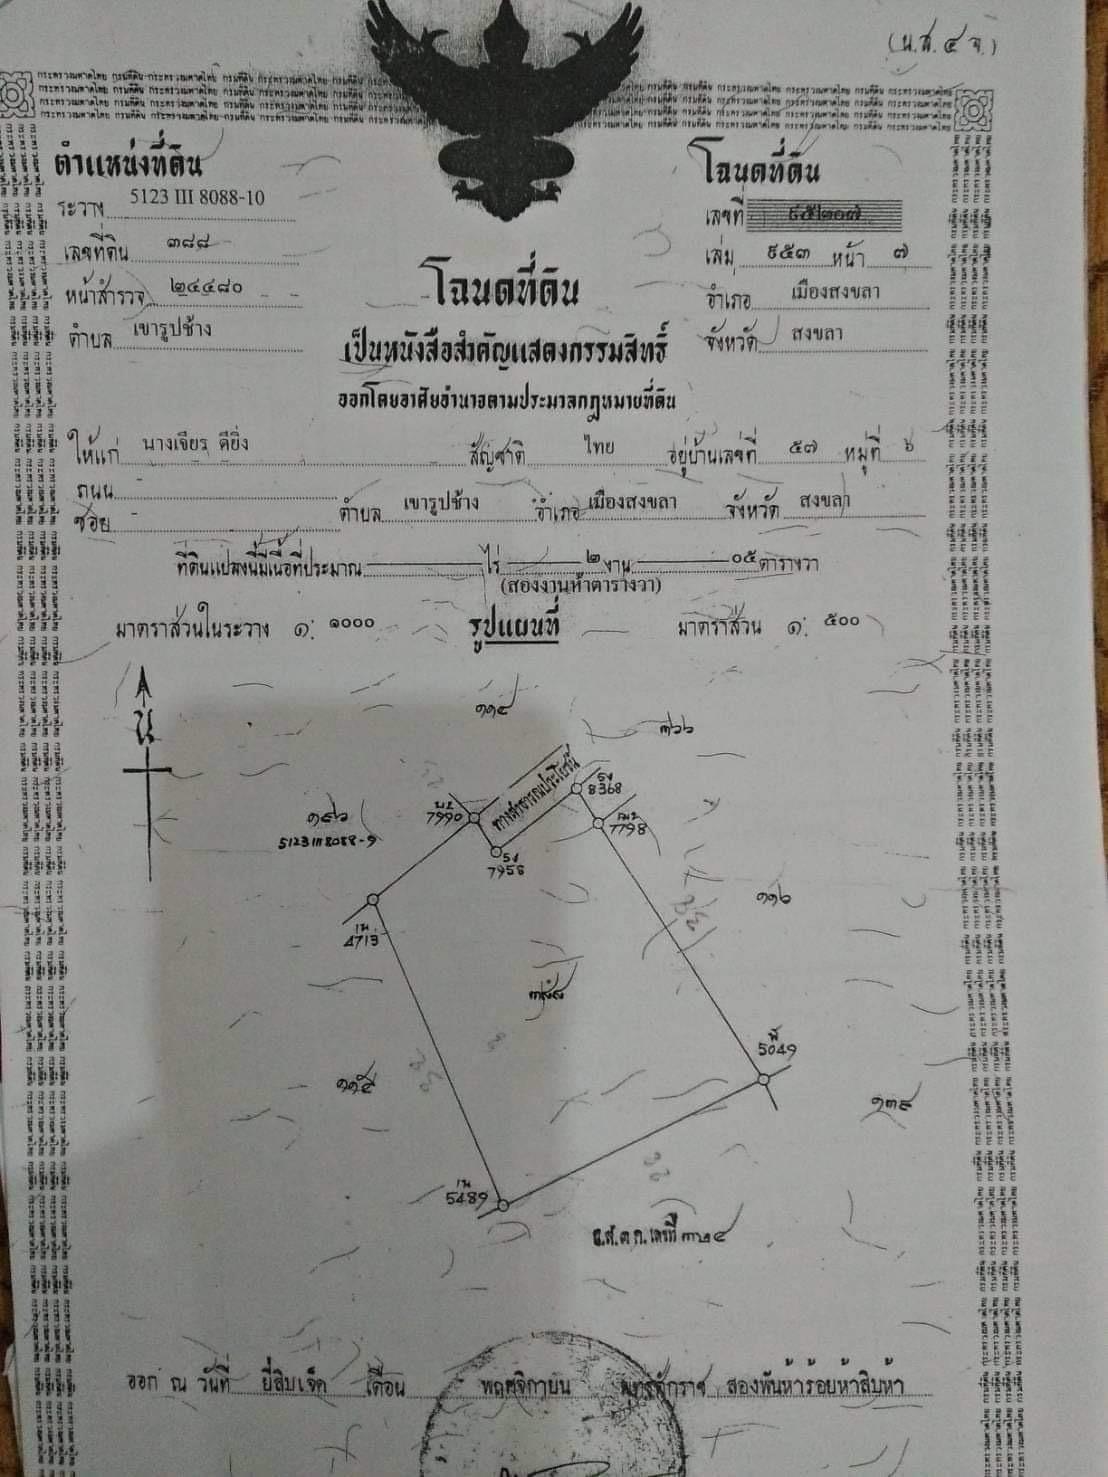 (น.ส. ๔ จ.)
ตำแหน่งที่ดิน
ระวาง 5123 III 8088-10
เลขที่ดิน ๓๘๘
หน้าสำรวจ ๒๔๔๘๐
ตำบล เขารูปช้าง
โฉนดที่ดิน
เลขที่ ๙๕๒๐๗
เล่ม ๙๕๓ หน้า ๗
อำเภอ เมืองสงขลา
จังหวัด สงขลา
โฉนดที่ดิน
เป็นหนังสือสำคัญแสดงกรรมสิทธิ์
ออกโดยอาศัยอำนาจตามประมวลกฎหมายที่ดิน
ให้แก่ นางเจียร คียิ่ง สัญชาติ ไทย อยู่บ้านเลขที่ ๕๗ หมู่ที่ ๖
ถนน
ซอย ตำบล เขารูปช้าง อำเภอ เมืองสงขลา จังหวัด สงขลา
ที่ดินแปลงนี้มีเนื้อที่ประมาณ ไร่ ๒ งาน ๐๕ ตารางวา
(สองงานห้าตารางวา)
มาตราส่วนในระวาง ๑: ๑๐๐๐ รูปแผนที่ มาตราส่วน ๑: ๕๐๐
น
๑๑๔
๓๖๖
ทางสาธารณประโยชน์
8368
7990
7798
๑๙๖
5123 III 8088-9
7958
๑๑๖
4713
๓๘๘
5049
๑๑๕
๑๓๙
5489
น.ส.๓ ก. เลขที่ ๓๒๔
ออก ณ วันที่ ยี่สิบเจ็ด เดือน พฤศจิกายน พุทธศักราช สองพันห้าร้อยห้าสิบห้า